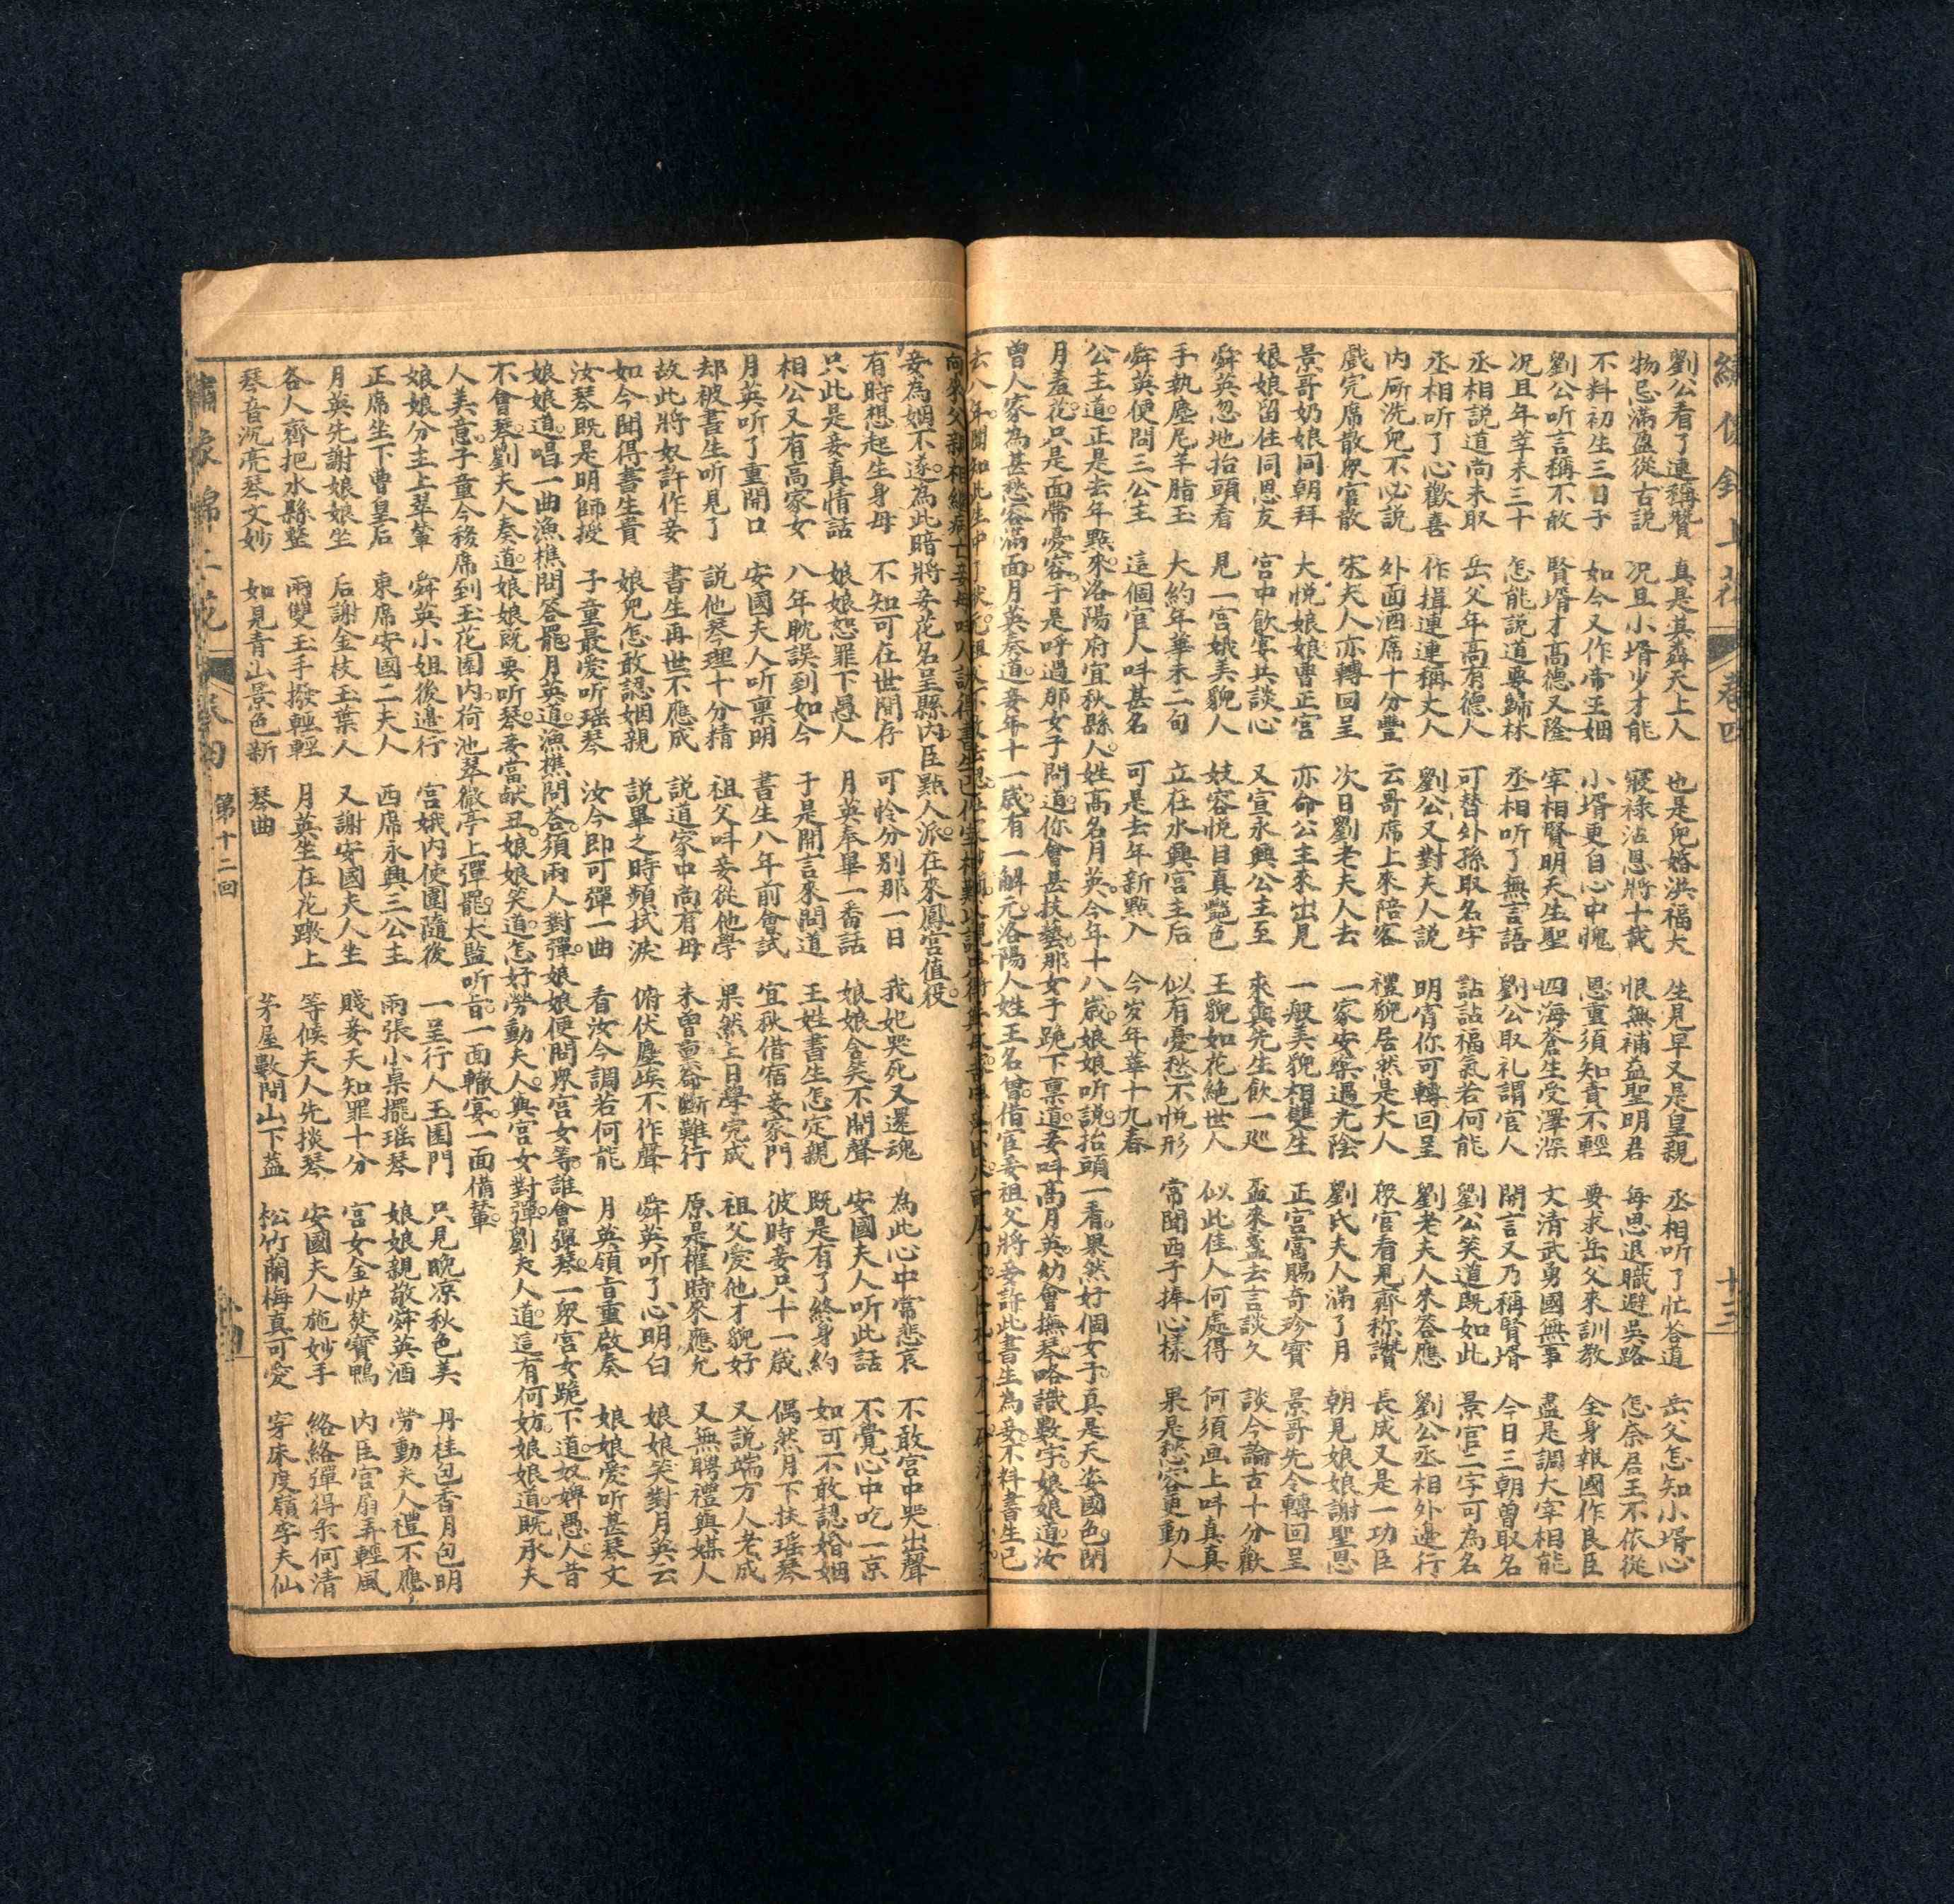 繡像錦上花 卷四 十三
劉公看了連稱贊 真是其森天上人 也是兒婚洪福大 生見早又是皇親 丞相听了忙答道 岳父怎知小壻心
物忌滿盈從古說 况且小壻少才能 寢祿沾恩將十載 恨無補益聖明君 每思退職避吳路 怎奈君王不依從
不料初生三日子 如今又作帝王姻 小壻更自心中愧 恩重須知責不輕 要求岳父來訓教 全身報國作良臣
劉公听言稱不敢 賢壻才高德又隆 宰相賢明天生聖 四海蒼生受澤深 文清武勇國無事 盡是調大宰相能
况且年莘未三十 怎能說道要歸林 丞相听了無言語 劉公取礼謂官人 開言又乃稱賢壻 今日三朝曾取名
丞相說道尚未取 岳父年高有德人 可替外孫取名字 詀詀福氣若何能 劉公笑道既如此 景官二字可為名
丞相听了心歡喜 作揖連連稱丈人 劉公又對夫人說 明宵你可轉回呈 劉老夫人朱答應 劉公丞相外邊行
内厛洗兒不必說 外面酒席十分豐 云哥席上來陪客 禮貌居然是大人 眾官看見齊称讚 長成又是一功臣
戲完席散眾官散 宋夫人亦轉回呈 次日劉老夫人去 一家安樂過光陰 劉氏夫人滿了月 朝見娘娘謝聖恩
景哥奶娘同朝拜 大悅娘娘曹正宮 亦命公主來出見 一般美貌相雙生 正宮當賜奇珍寳 景哥先令轉回呈
娘娘留住同恩友 宮中飲宴共談心 又宣永興公主至 來與先生飲一廵 盃來盞去言談久 談今論古十分歡
舜英忽地抬頭看 見一宮娥美貌人 妓容悅目真艷色 王貌如花絕世人 似此佳人何處得 何須画上呌真真
手執塵尾羊脂玉 大約年華未二旬 立在永興宮主后 似有憂愁不悅形 常聞西子捧心樣 果是愁容更動人
舜英便問三公主 這個官人呌甚名 可是去年新點入 今岁年華十九春
公主道。正是去年點來洛陽府宜秋縣人。姓高名月英。今年十八歲。娘娘听說抬頭一看。果然好個女子。真是天姿國色閉
月羞花。只是面帶憂容。于是呼過那女子問道。你會甚技藝。那女子跪下禀道。妾呌高月英。幼會撫琴。略識數字。娘娘道。汝
曾人家。為甚愁容滿面。月英奏道。妾年十一歲有一解元洛陽人姓王名曾。借官妾祖父將妾許此書生為妾。不料書生已
妾為姻不遂。為此暗將妾花名呈縣内。臣點人派在來鳳宮值役。
有時想起生身母 不知可在世間存 可怜分別那一日 我妃哭死又還魂 為此心中常悲哀 不敢宮中哭出聲
只此是妾真情話 娘娘恕罪下愚人 月英奉畢一番話 娘娘含笑不開聲 安國夫人听此話 不覺心中吃一京
相公又有高家女 八年耽誤到如今 于是開言來問道 王姓書生怎定親 既是有了終身約 如可不敢認婚姻
月英听了重開口 安國夫人听禀明 書生八年前會試 宜秋借宿妾家門 彼時妾只十一歲 偶然月下扶瑶琴
却被書生听見了 說他琴理十分精 祖父呌妾從他學 果然上日學完成 祖父愛他才貌好 又說端方人老成
故此將奴許作妾 書生再世不應成 說道家中尚有母 未曾重啟断難行 原是權時來應允 又無聘禮與媒人
如今聞得書生貴 娘兒怎敢認姻親 說畢之時頻拭淚 俯伏塵埃不作聲 舜英听了心明白 娘娘笑對月英云
汝琴既是明師授 子童最愛听瑶琴 汝今即可彈一曲 看汝今調若何能 月英領旨重啟奏 娘娘愛听甚琴文
娘娘道。唱一曲漁樵問答罷。月英道。漁樵問答。須兩人對彈。娘娘便問眾宮女等。誰會彈琴。一眾宮女跪下道。奴婢愚人昔
不會琴。劉夫人奏道。娘娘既要听琴。妾當献丑。娘娘笑道。怎好勞動夫人。與宮女對彈。劉夫人道。這有何妨。娘娘道。既承夫
人美意。子童今移席到玉花園内。荷池翠微亭上彈罷。太監听旨。一面轍宴。一面備輦。
娘娘分主上翠輦 舜英小姐後邊行 宮娥内使團隨後 一呈行人玉園門 只見晚凉秋色美 丹桂包香月包明
正席坐下曹皇后 東席安國二夫人 西席永興三公主 兩張小桌擺瑶琴 娘娘親敬舜英酒 勞動夫人禮不應
月英先謝娘娘坐 后謝金枝玉葉人 又謝安國夫人坐 賤妾天知罪十分 宮女金炉焚寶鴨 内臣宫扇弄輕風
各人齊把水縣整 兩雙玉手撥輕輕 月英坐在花墩上 等候夫人先掞琴 安國夫人施妙手 絡絡彈得余何清
琴音沉亮琴文妙 如見青山景色新 琴曲 茅屋數間山下蓋 松竹蘭梅真可愛 穿床度嶺李夫仙
繡像錦上花 卷四 第十二回